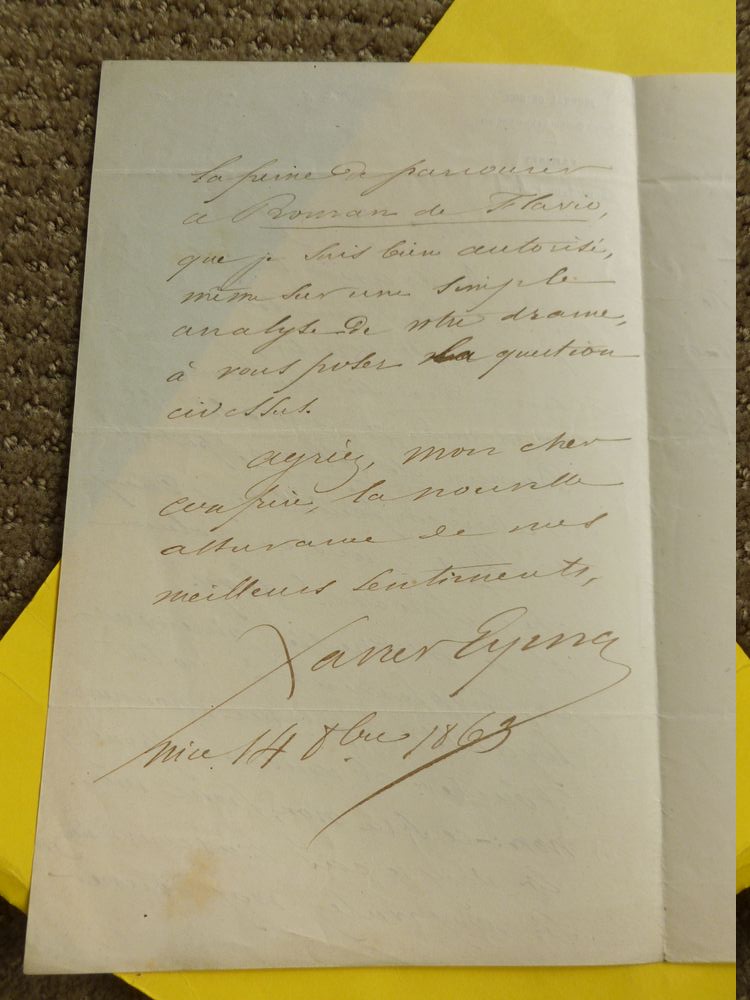 la peine de parcourir
ce Roman de Flavio,
que je suis bien autorisé,
même sur une simple
analyse de votre drame,
à vous poser la question
cidessus.
agriéz, mon cher
confrère, la nouvelle
assurance de mes
meilleurs sentiments,
Xavier Eyma
Nice 14 8bre 1863